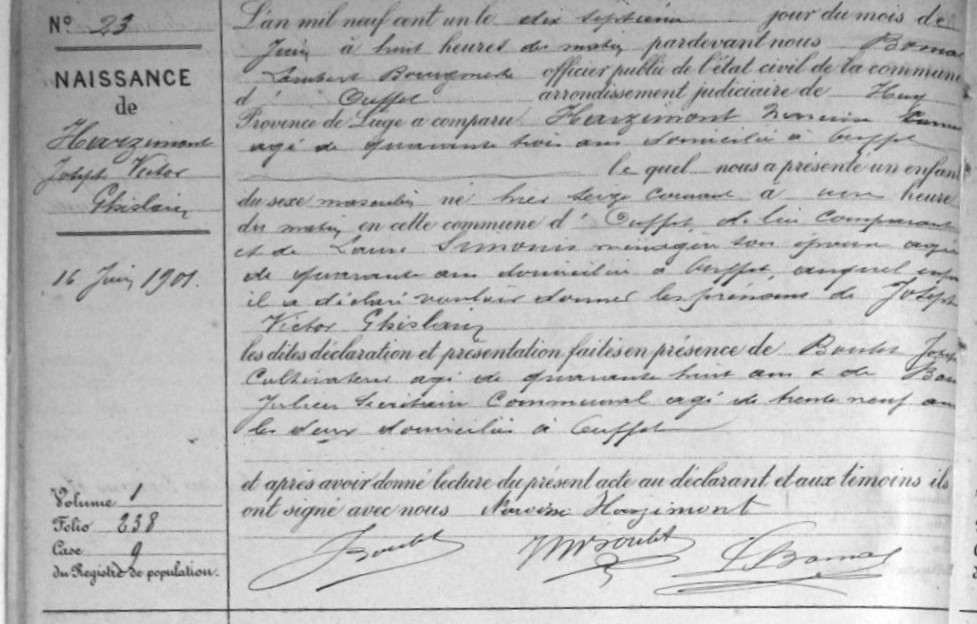 N° 23
NAISSANCE
de
Harzimont
Joseph Victor
Ghislain
16 Juin 1901.
Volume 1
Folio 238
Case 9
du Registre de population.
L'an mil neuf cent un le dix septième jour du mois de
Juin à huit heures du matin pardevant nous Bomal
Lambert Bourgmestre officier public de l'état civil de la commune
d' Ouffet arrondissement judiciaire de Huy
Province de Liège a comparu Harzimont Narcisse
agé de quarante trois ans domicilié à Ouffet
le quel nous a présenté un enfant
du sexe masculin né hier seize courant à une heure
du matin en cette commune d' Ouffet, de lui comparant
et de Laure Simonis ménagère son épouse agée
de quarante ans domiciliée à Ouffet, auquel enfant
il a déclaré vouloir donner les prénoms de Joseph
Victor Ghislain
les dites déclaration et présentation faites en présence de Boulet Joseph
Cultivateur agé de quarante huit ans & de
Julien Secrétaire Communal agé de trente neuf ans
les deux domiciliés à Ouffet
et après avoir donné lecture du présent acte au déclarant et aux témoins ils
ont signé avec nous Narcisse Harzimont
Boulet L Bomal